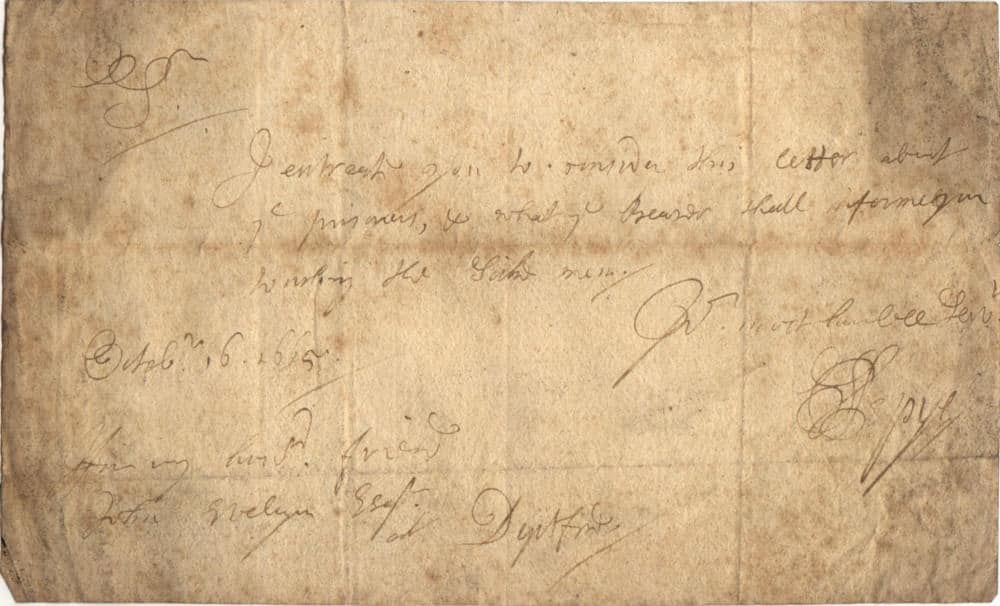 Sr.
I entreate you to consider this letter about
ye prisoners, & what ye Bearer shall informe you
touching the Sicke men.
Yr. most humble Servt
SPepys
Octobr. 16. 1665.
my honrd. friend
John Evelyn Esqr. at Deptford